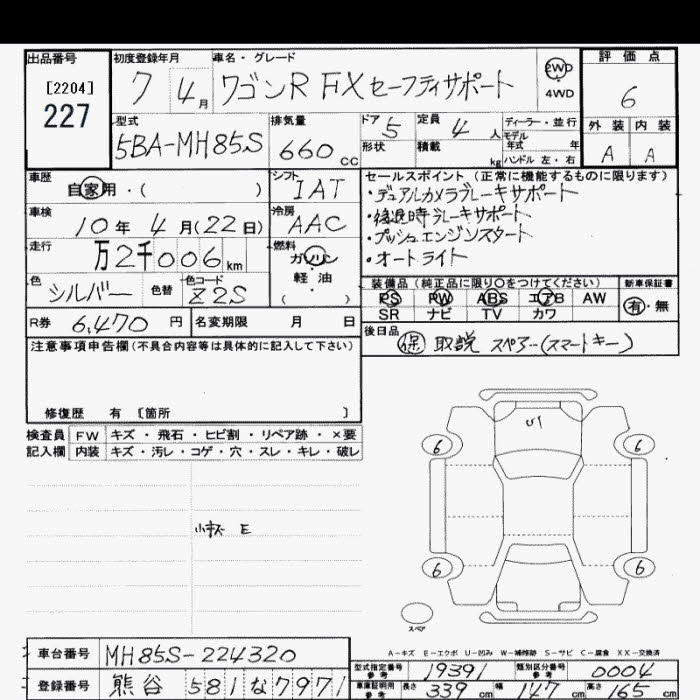 出品番号 初度登録年月 車名・グレード 評価点
[2204] 7 4月 ワゴンR FX セーフティサポート 2WD 6
227 4WD
型式 排気量 ドア 定員 ディーラー・並行 外装 内装
5BA-MH85S 660cc 5 4人 モデル年式 年 A A
形状 積載 kg ハンドル 左・右
車歴 シフト セールスポイント(正常に機能するものに限ります)
自家用・( ) IAT ・デュアルカメラブレーキサポート
車検 冷房 ・後退時ブレーキサポート
10年 4月(22日) AAC ・プッシュエンジンスタート
走行 燃料 ・オートライト
万2千006km ガソリン
軽油
( )
色 色替 色コード 装備品(純正品に限り○をつけてください) 新車保証書
シルバー Z2S PS PW ABS エアB AW 有・無
SR ナビ TV カワ
R券 6,470円 名変期限 月 日 後日品
注意事項申告欄(不具合内容等は具体的に記入して下さい) 保 取説 スペアー(スマートキー)
修復歴 有 [箇所 ]
検査員 FW キズ・飛石・ヒビ割・リペア跡・×要
記入欄 内装 キズ・汚レ・コゲ・穴・スレ・キレ・破レ
U1
6 6
小キズ E
6 6
スペア
A-キズ E-エクボ U-凹み W-補修跡 S-サビ C-腐食 XX-交換済
車台番号 MH85S-224320
型式指定番号 参考 19391 類別区分番号 参考 0004
登録番号 熊谷 581 な 7971
車庫証明用 参考 長さ 339cm 幅 147cm 高さ 165cm